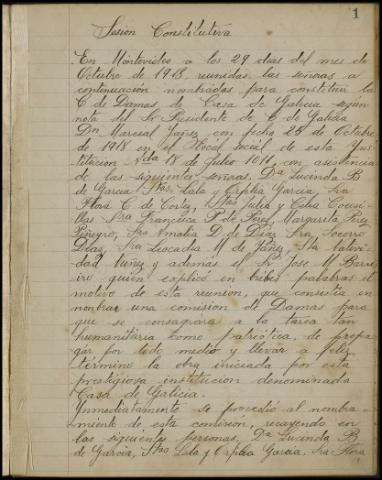 1
Sesion Constitutiva
En Montevideo a los 29 dias del mes de
Octubre de 1918, reunidas las señoras a
continuación nombradas para constituir la
C de Damas de Casa de Galicia según
nota del Sr Presidente de C de Galicia
Dn Marcial Yañez con fecha 25 de Octubre
de 1918 en el local social de esta Yns-
titucion 18 de Julio 1011, con asistencia
de las siguientes señoras. Da Lucinda B
de Garcia Stas Lala y Orfilia Garcia, Sra
Flora C. de Cortés, Stas Julia y Celia Cousi-
llas Sra Francisca P de Perez, Margarita Rey
Piñeyro, Sra Amalia D. de Diaz Sra, Socorro
Diaz, Sra Leocadia M de Yáñez, Sta Nativi-
dad Nuñez y además el Sr Jose M. Barre-
iro quien explicó en brebes palabras el
motivo de esta reunion, que consiste en
nombrar una comision de Damas para
que se consagrara a la tarea tan
humanitária como patriótica, de propa-
gár por todo medio y llevár á feliz
término la obra iniciada por esta
prestigiosa institucion denominada
Casa de Galicia.
Ynmediatamente se procedió al nombra-
miento de esta comision, recayendo en
las siguientes personas, Da Lucinda B
de Garcia, Stas Lala y Orfilia Garcia, Sra Flora